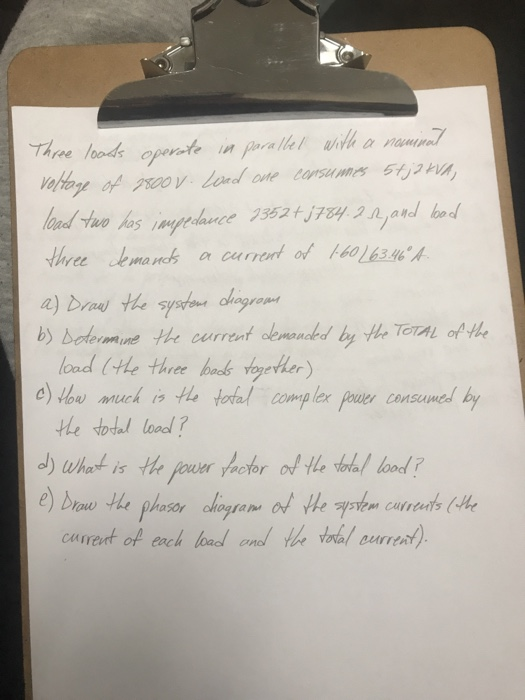 Three loads operate in parallel with a nominal
voltage of 2800 V. Load one consumes 5+j2 kVA,
load two has impedance 2352+j784.2 Ω, and load
three demands a current of 1.60∠63.46° A.
a) Draw the system diagram
b) Determine the current demanded by the TOTAL of the
load (the three loads together)
c) How much is the total complex power consumed by
the total load?
d) What is the power factor of the total load?
e) Draw the phasor diagram of the system currents (the
current of each load and the total current).